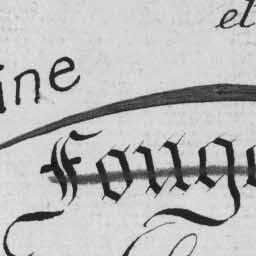 et
ine
Fouge